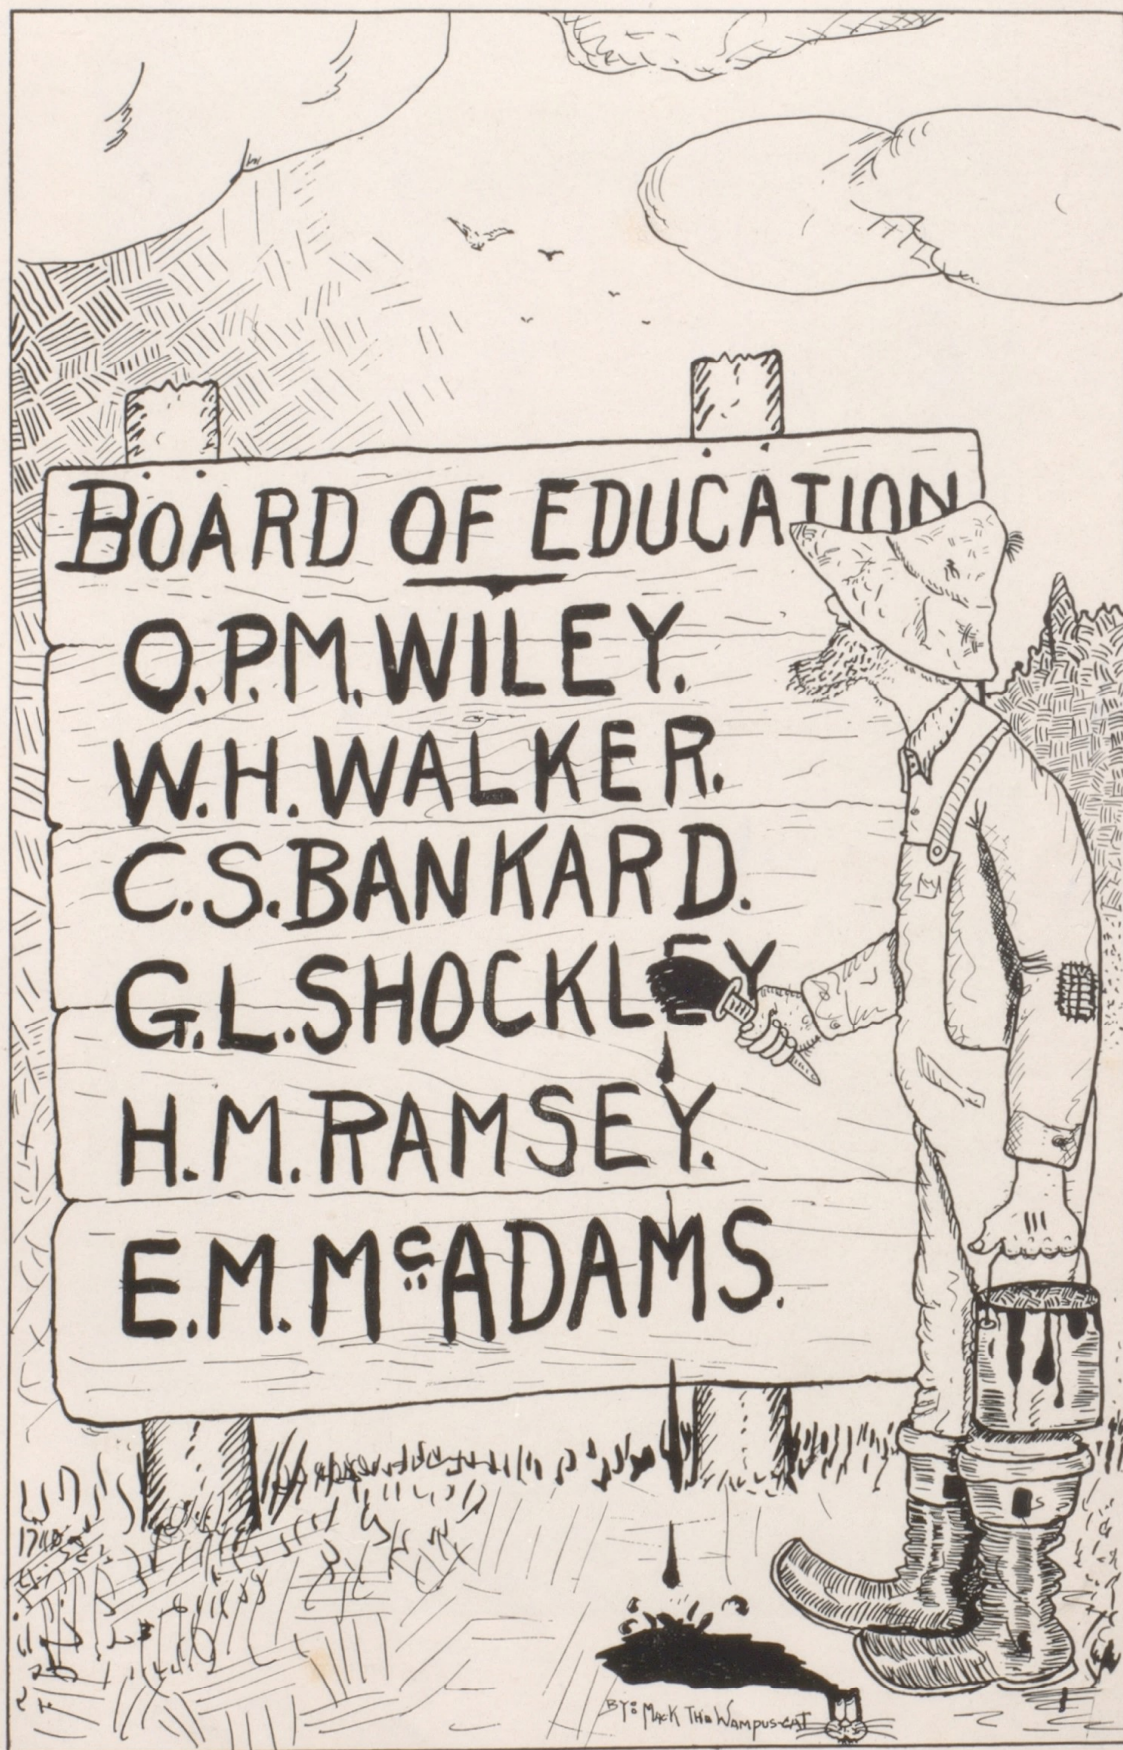 BOARD OF EDUCATION
O.P.M. WILEY.
W.H. WALKER.
C.S. BANKARD.
G.L. SHOCKLEY
H.M. RAMSEY.
E.M. McADAMS.
BY: MACK THE WAMPUS-CAT